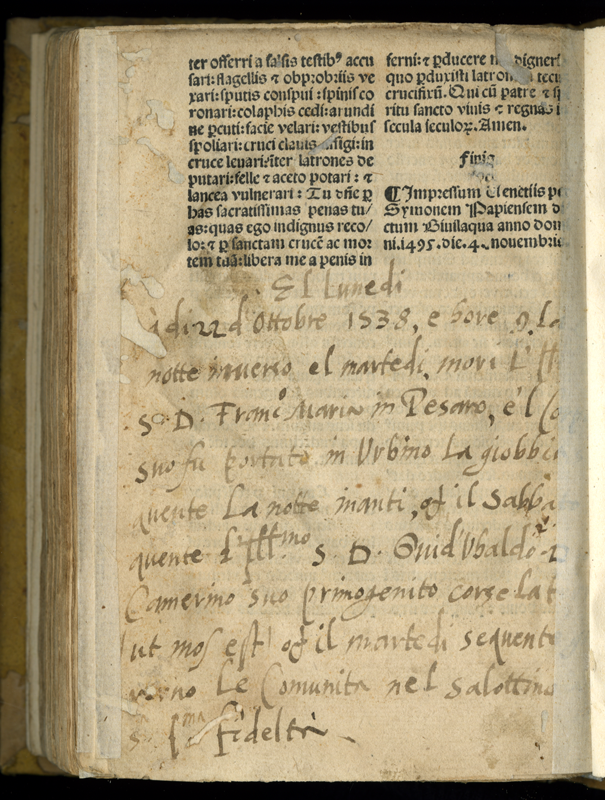 ter offerri a falsis testibꝰ accu
sari: flagellis ⁊ obprobriis ve
xari: sputis conspui: spinis co
ronari: colaphis cedi: arundi
ne ꝑcuti: facie velari: vestibus
spoliari: cruci clauis figi: in
cruce leuari: iter latrones de
putari: felle ⁊ aceto potari: ⁊
lancea vulnerari: Tu dn̄e ꝑ
has sacratissimas penas tu/
as: quas ego indignus reco/
lo: ⁊ ꝑ sanctam crucē ac mor
tem tuā: libera me a penis in
ferni: ⁊ ꝑducere digner
quo ꝑduxisti latron tecu
crucifixū. Qui cū patre ⁊ sp
ritu sancto viuis ⁊ regnas i
secula seculoꝝ. Amen.
Finis
¶ Impressum Uenetiis pe
Symonem Papiensem d
ctum Biuilaqua anno don
ni. 1495. die. 4. nouembris
El Lunedi
adi 22 d'Ottobre 1538, e hore 9 La
notte inverso el martedi, mori L'Ill
S. D. Franc.o Maria in Pesaro, e'l Co
suo fu portato in Urbino La giobbia
quente La notte inanti, et il Sabba
quente L'Ill.mo S. D. Guid'Ubaldo
Camerino suo primogenito corse la t
ut mos est et il martedi sequente
Le Comunita nel Salottino
S. fideltà